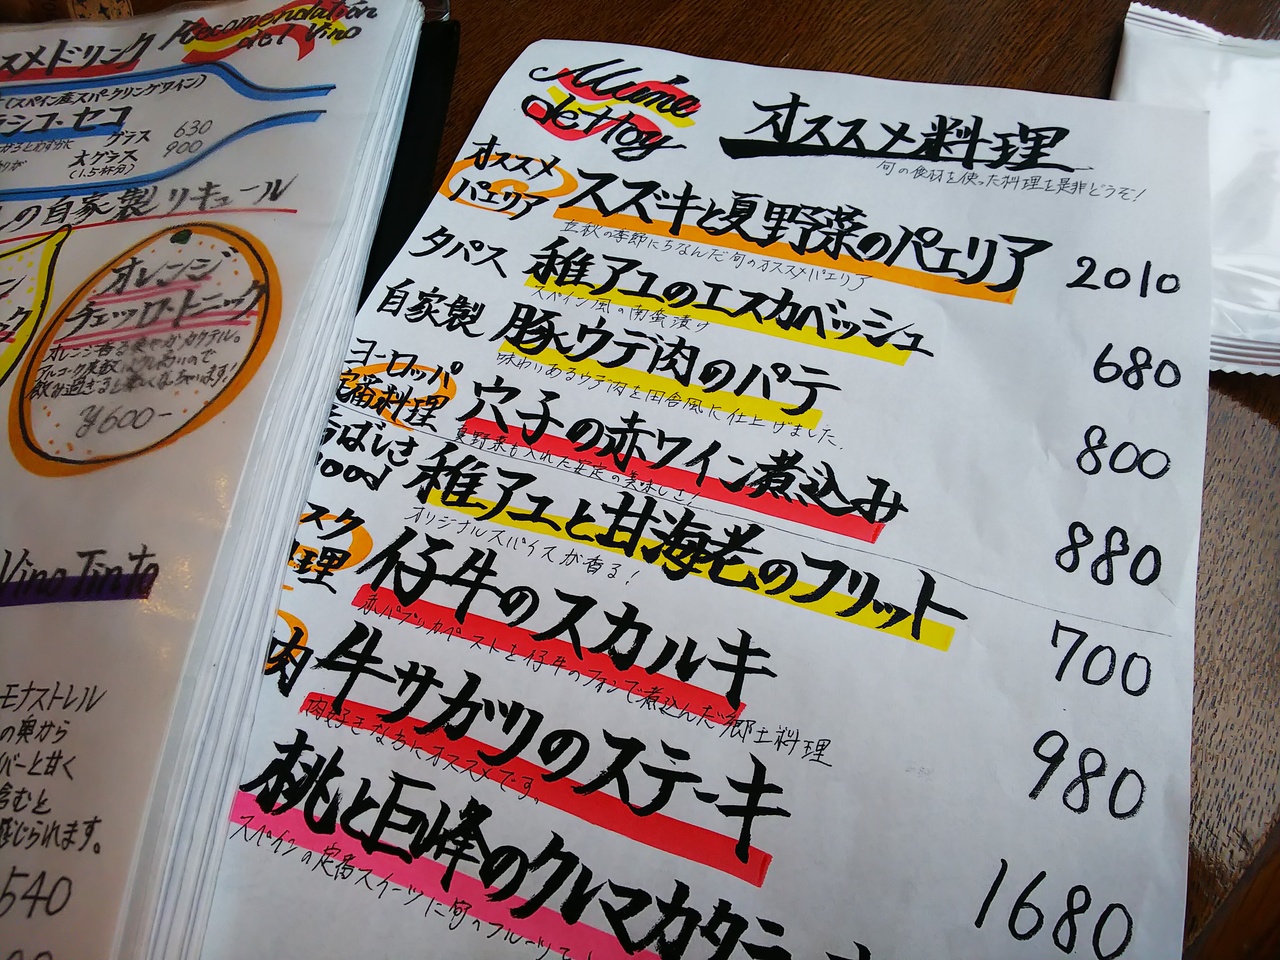 スメドリンク
Recomendación
del Vino
(スペイン産スパークリングワイン)
シコ・セコ
グラス 630
大グラス 900
(1.5杯分)
しの自家製リキュール
オレンジ
チェッロ・トニック
オレンジ香る爽やかカクテル。
飲み過ぎると
¥600-
Vino Tinto
モナストレル
の奥から
バーと甘く
含むと
感じられます。
540
de Hoy
オススメ料理
旬の食材を使った料理を是非どうぞ!
オススメ
パエリア
スズキと夏野菜のパエリア 2010
立秋の季節にちなんだ旬のオススメパエリア
タパス 稚アユのエスカベッシュ 680
スペイン風の南蛮漬け
自家製 豚ウデ肉のパテ 800
味わりあるウデ肉を田舎風に仕上げました。
ヨーロッパ
定番料理
穴子の赤ワイン煮込み 880
夏野菜も入れた安定の美味しさ!
稚アユと甘海老のフリット 700
オリジナルスパイスが香る!
スク
理
仔牛のスカルキ 980
赤パプリカペーストと仔牛のフォンで煮込んだ郷土料理
肉 牛サガリのステーキ 1680
肉好きな方にオススメです。
桃と巨峰のクレマカタ
スペインの定番スイーツに旬のフルーツ